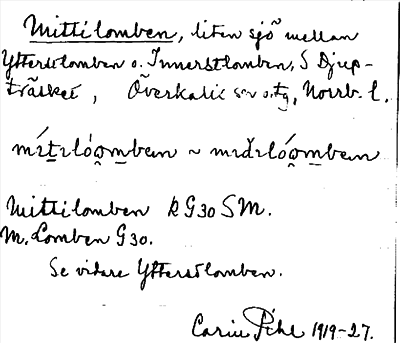 Mittilomben, liten sjö mellan
Ytterstlomben o. Innerstlomben, S Djup-
träsket, Överkalix sn o. tg, Norrb. l.
Mittilomben R G30 SM.
M. Lomben G30.
Se vidare Ytterstlomben.
Carin Pihl 1919-27.